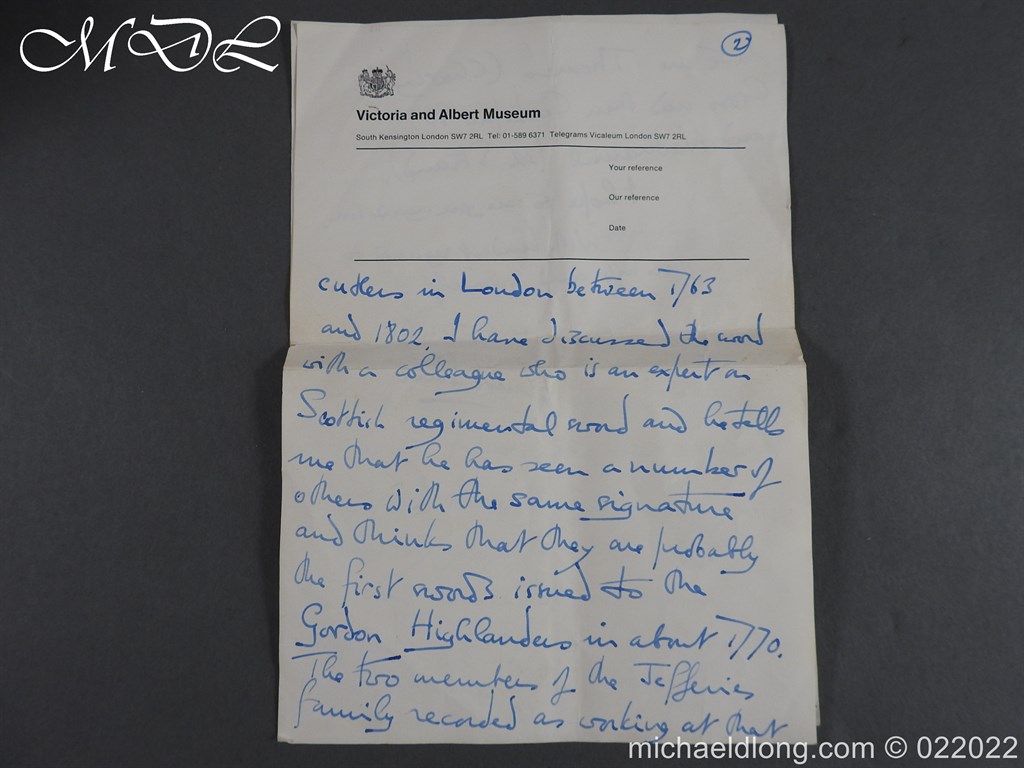 MDL
2
Victoria and Albert Museum
South Kensington London SW7 2RL Tel: 01-589 6371 Telegrams Vicaleum London SW7 2RL
Your reference
Our reference
Date
cutlers in London between 1763
and 1802. I have discussed the word
with a colleague who is an expert on
Scottish regimental sword and he tells
me that he has seen a number of
others with the same signature
and thinks that they are probably
the first swords issued to the
Gordon Highlanders in about 1770.
The two members of the Jefferies
family recorded as working at that
michaeldlong.com © 022022